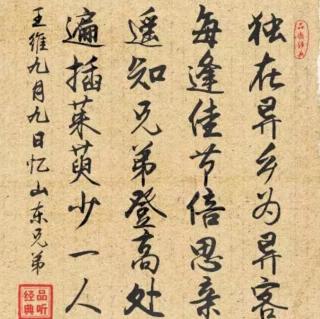 独在异乡为异客
每逢佳节倍思亲
遥知兄弟登高处
遍插茱萸少一人
王维九月九日忆山东兄弟
品听
经典